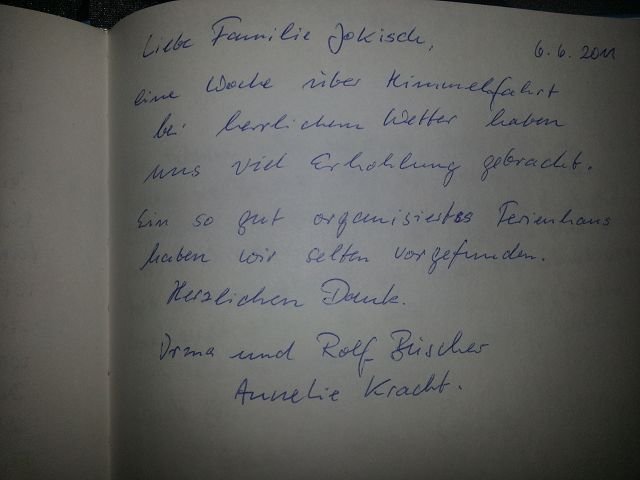 Liebe Familie Jokisch,
6.6.2011
eine Woche über Himmelfahrt
bei herrlichem Wetter haben
uns viel Erhohlung gebracht.
Ein so gut organisiertes Ferienhaus
haben wir selten vorgefunden.
Herzlichen Dank.
und Rolf Büscher
Annelie Kracht.